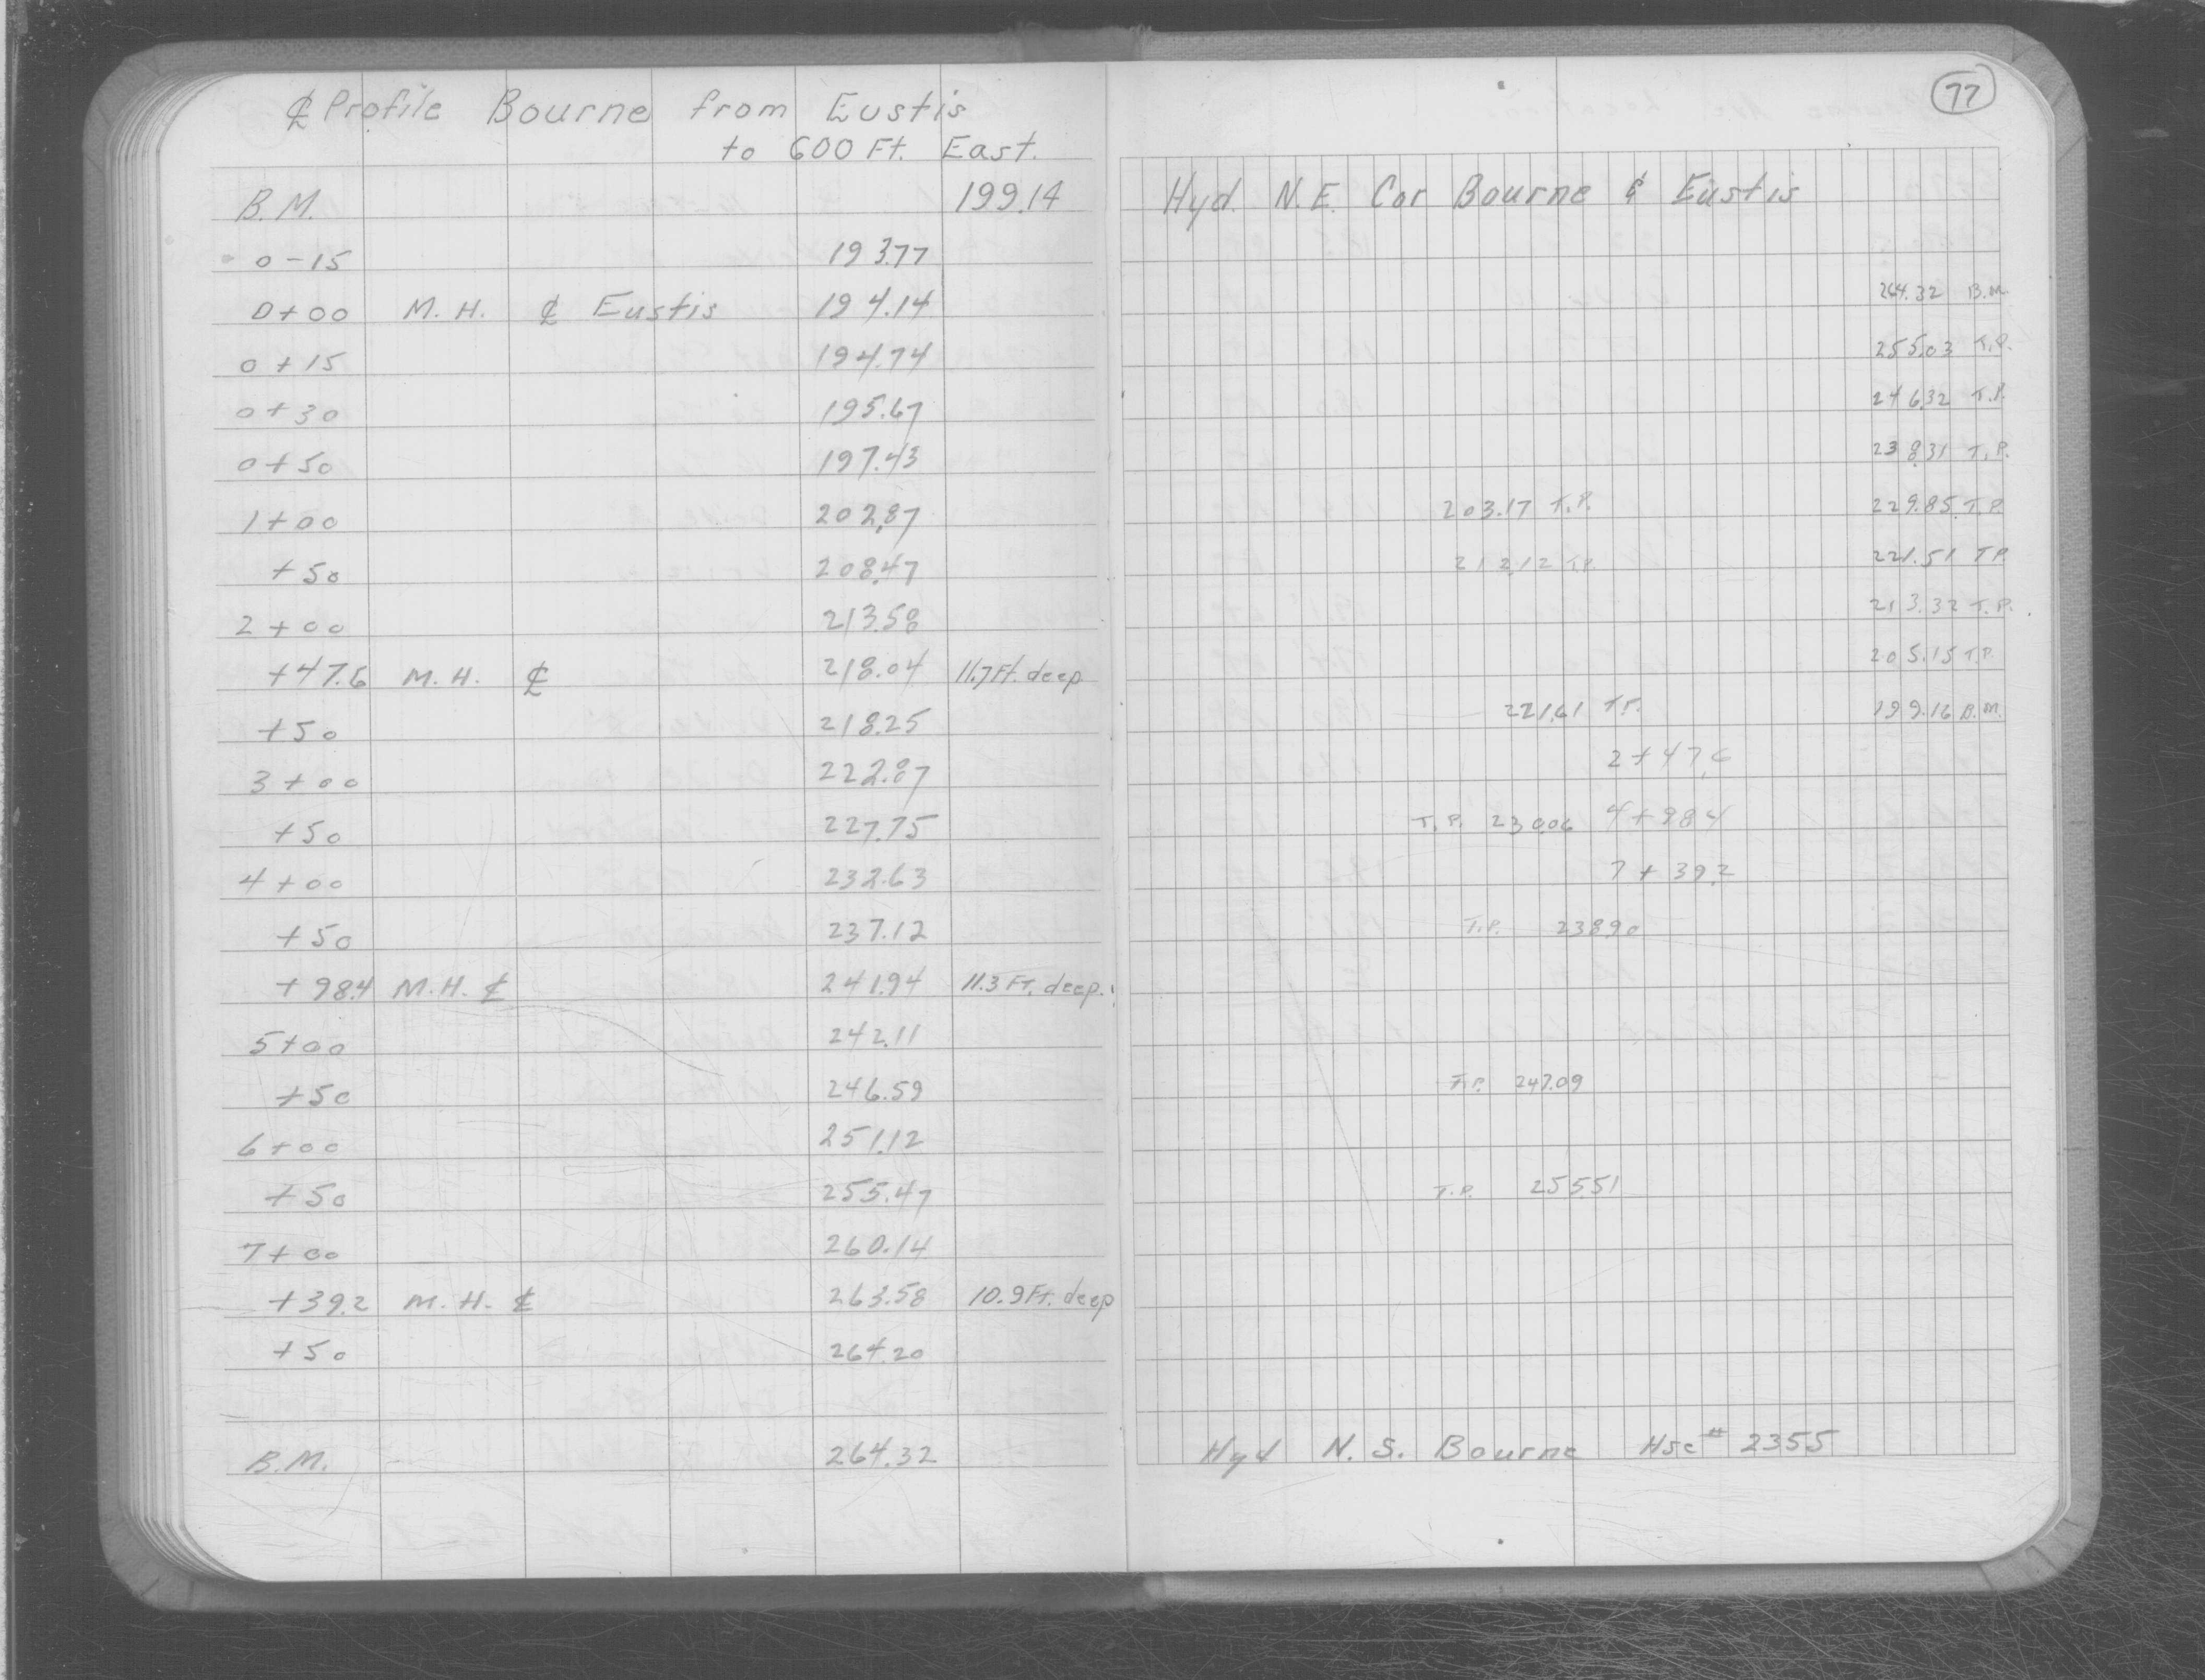 ℄ Profile Bourne from Eustis
to 600 Ft. East.
B.M. 199.14
0-15 193.77
0+00 M.H. ℄ Eustis 194.14
0+15 194.74
0+30 195.67
0+50 197.43
1+00 202.87
+50 208.47
2+00 213.58
+47.6 M.H. ℄ 218.04 11.7 Ft. deep
+50 218.25
3+00 222.87
+50 227.75
4+00 232.63
+50 237.12
+98.4 M.H. ℄ 241.94 11.3 Ft. deep.
5+00 242.11
+50 246.59
6+00 251.12
+50 255.47
7+00 260.14
+39.2 M.H. ℄ 263.58 10.9 Ft. deep
+50 264.20
B.M. 264.32
77
Hyd. N.E. Cor Bourne & Eustis
264.32 B.M.
255.03 T.P.
246.32 T.P.
238.31 T.P.
203.17 T.P. 229.85 T.P.
212.12 T.P. 221.51 T.P.
213.32 T.P.
205.15 T.P.
221.61 T.P. 199.16 B.M.
2+47.6
T.P. 230.06 4+98.4
7+39.2
T.P. 238.90
T.P. 247.09
T.P. 255.51
Hyd N.S. Bourne Hse # 2355